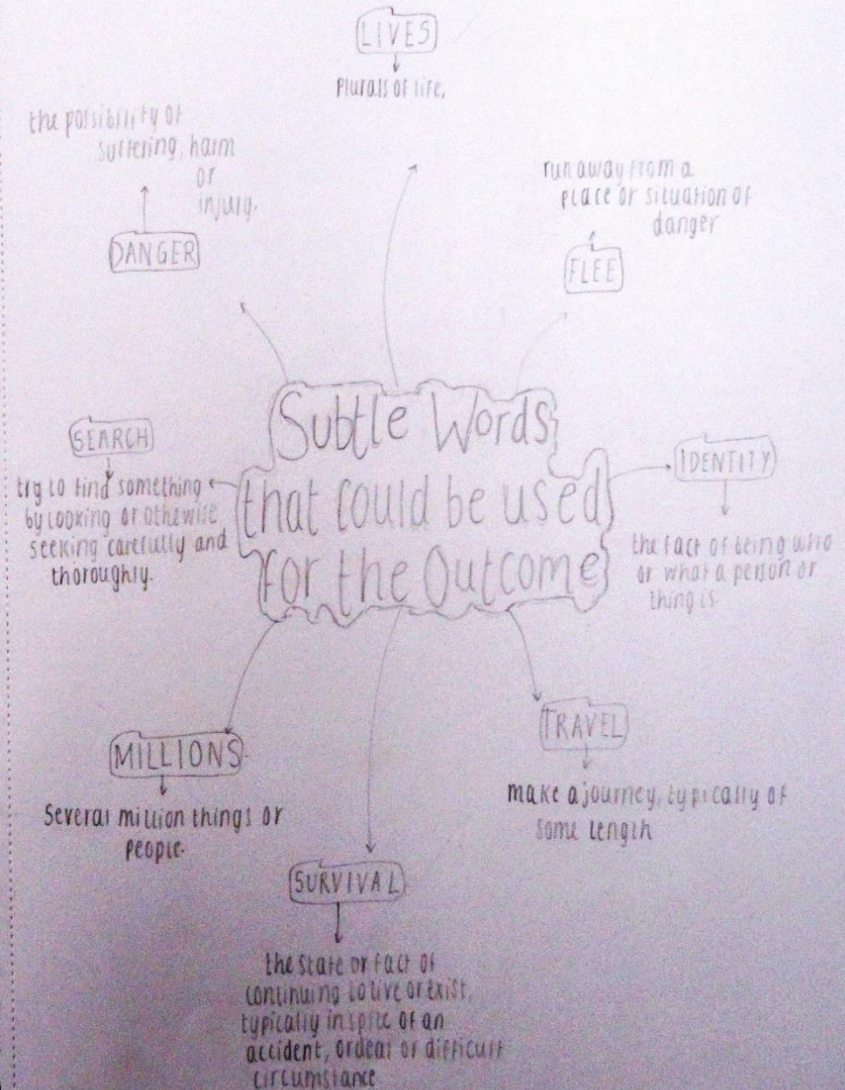 LIVES
Plurals of life.
the possibility of
suffering, harm
or
injury.
DANGER
run away from a
place or situation of
danger
FLEE
Subtle Words
that could be used
for the Outcome
SEARCH
try to find something
by looking or othewise
seeking carefully and
thoroughly.
IDENTITY
the fact of being who
or what a person or
thing is
MILLIONS
Several million things or
people.
TRAVEL
make a journey, typically of
some length
SURVIVAL
the state or fact of
continuing to live or exist,
typically in spite of an
accident, ordeal or difficult
circumstance